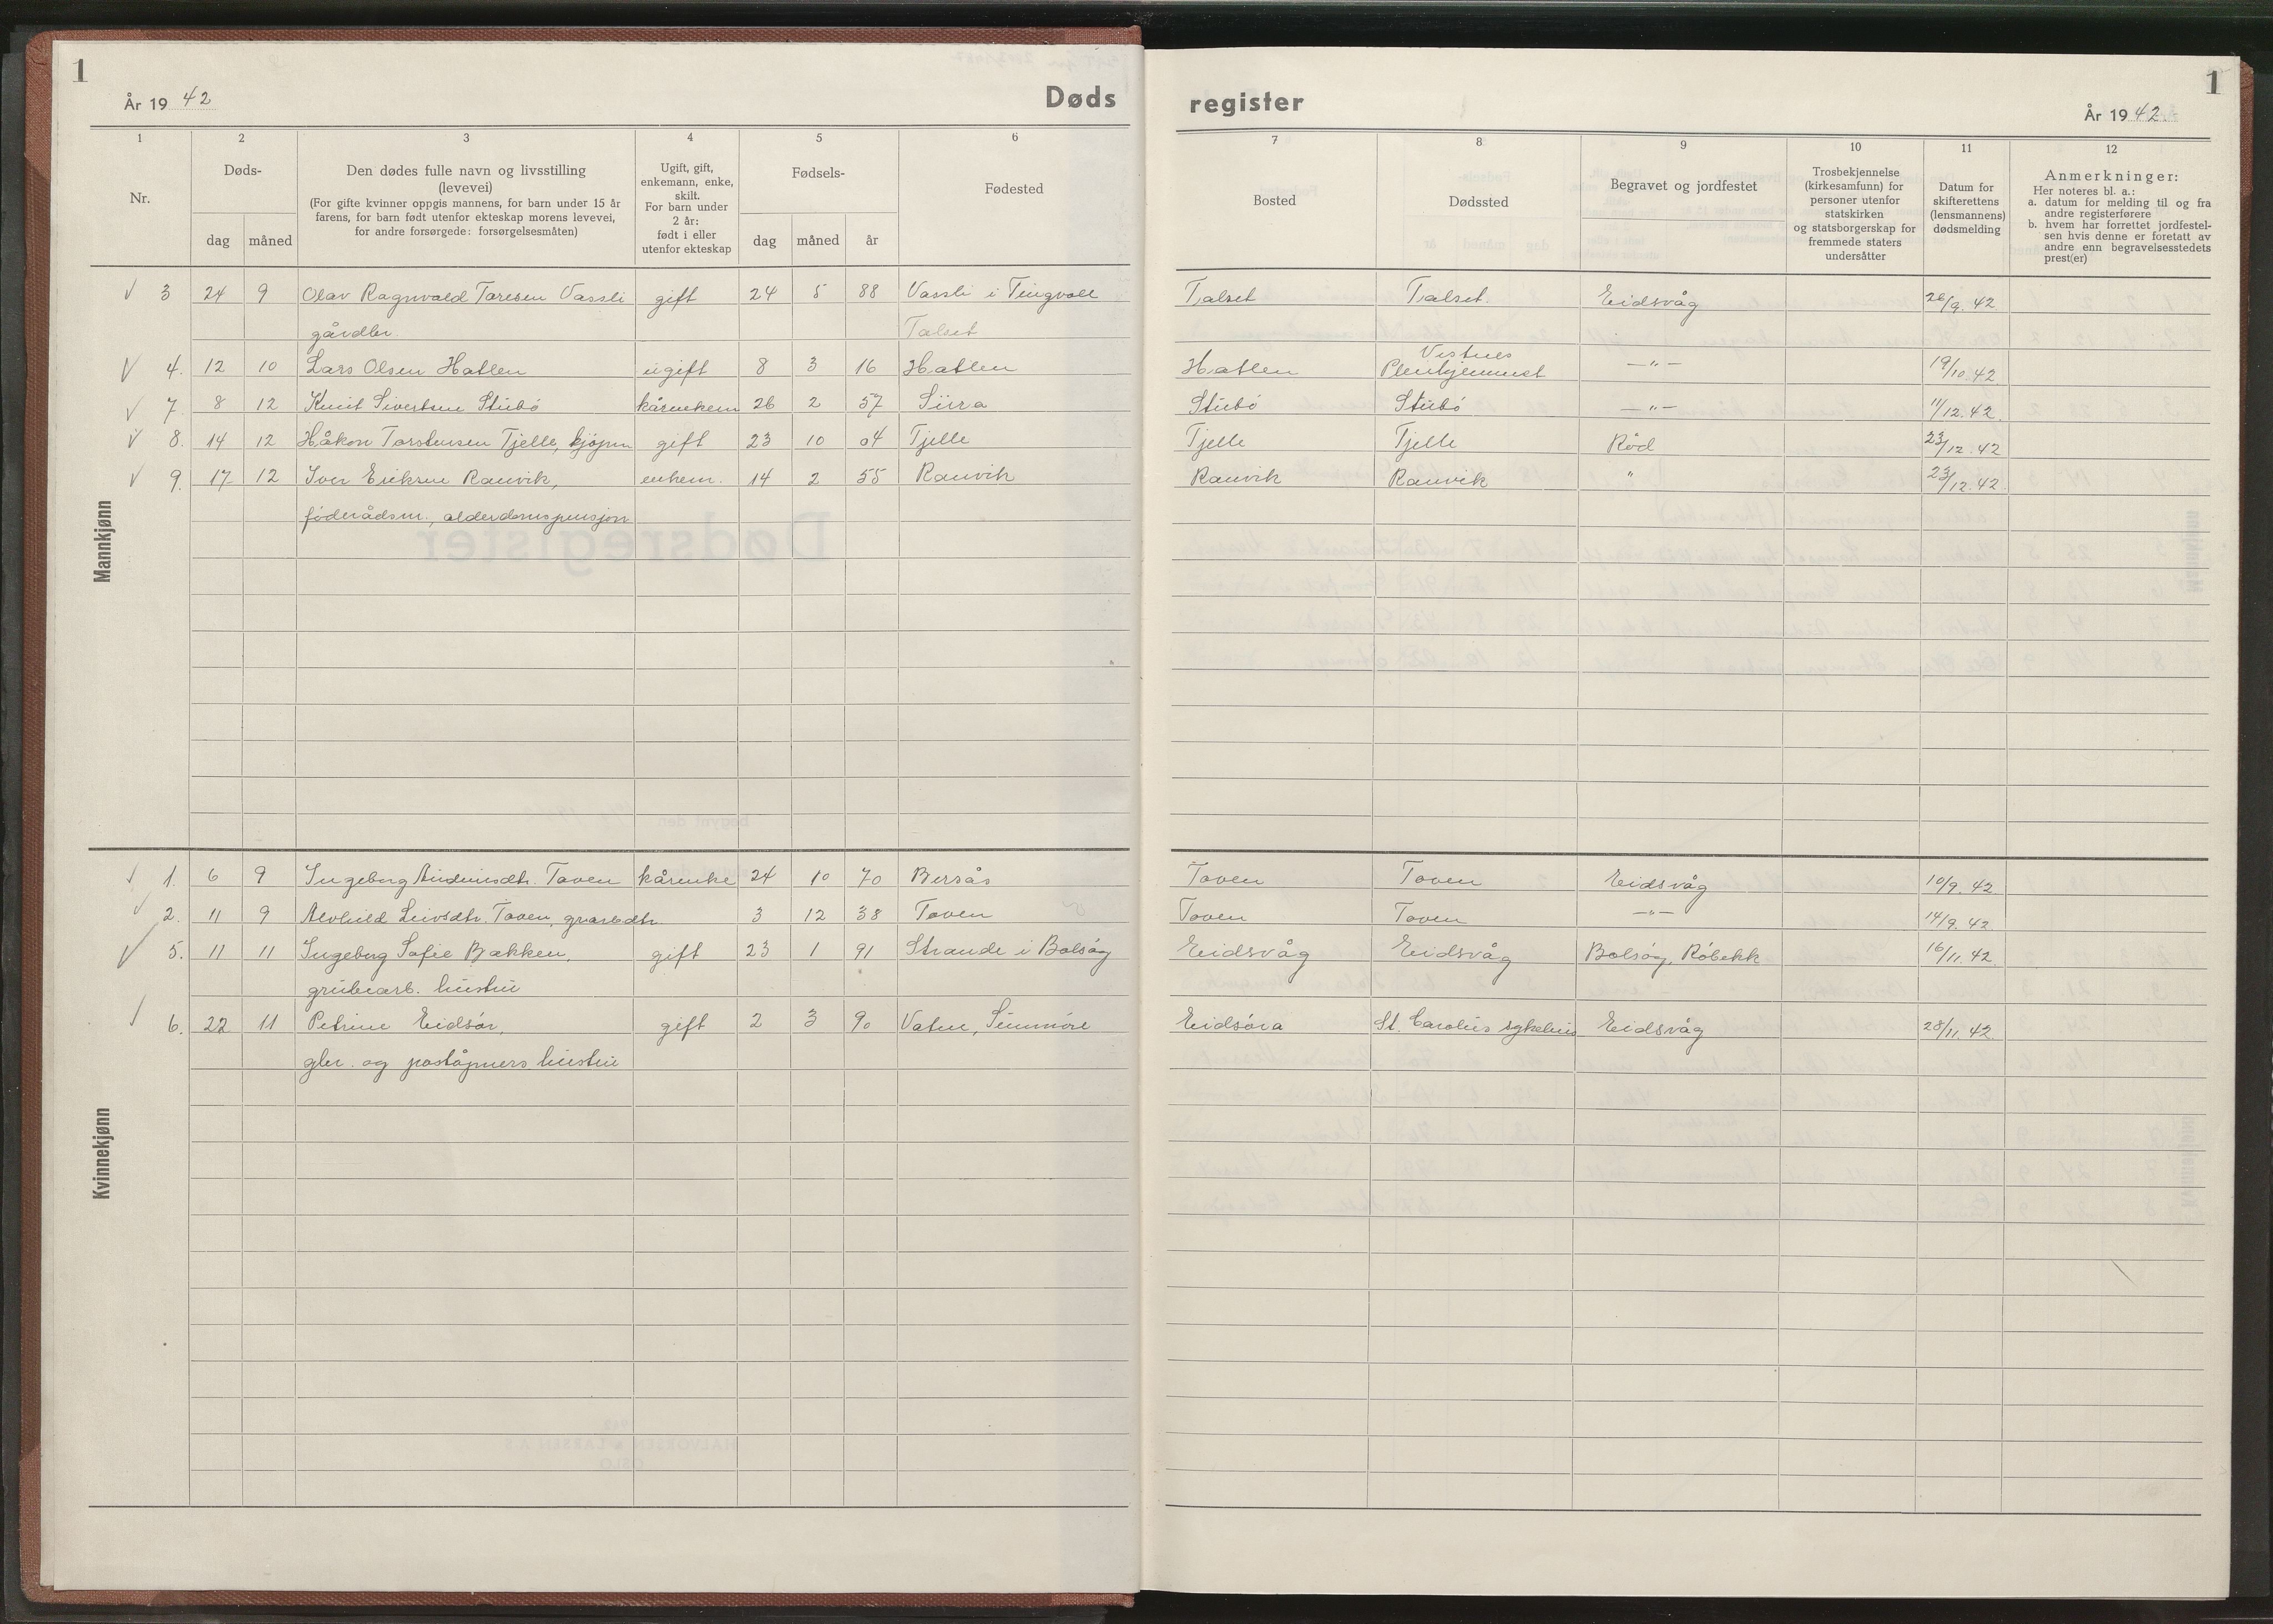 1
År 19 42
Døds
register
År 19 42
1
1 2 3 4 5 6 7 8 9 10 11 12
Nr.
Døds-
dag måned
Den dødes fulle navn og livsstilling
(levevei)
(For gifte kvinner oppgis mannens, for barn under 15 år
farens, for barn født utenfor ekteskap morens levevei,
for andre forsørgede: forsørgelsesmåten)
Ugift, gift,
enkemann, enke,
skilt.
For barn under
2 år:
født i eller
utenfor ekteskap
Fødsels-
dag måned år
Fødested
Bosted
Dødssted
Begravet og jordfestet
Trosbekjennelse
(kirkesamfunn) for
personer utenfor
statskirken
og statsborgerskap for
fremmede staters
undersåtter
Datum for
skifterettens
(lensmannens)
dødsmelding
Anmerkninger:
Her noteres bl. a.:
a. datum for melding til og fra
andre registerførere
b. hvem har forrettet jordfestel-
sen hvis denne er foretatt av
andre enn begravelsesstedets
prest(er)
Mannkjønn
√ 3 24 9 Olav Ragnvald Toresen Vassli gift 24 5 88 Vassli i Tingvoll Talset Talset. Eidsvåg 26/9. 42
gårdbr. Talset
√ 4. 12 10 Lars Olsen Hatlen ugift 8 3 16 Hatlen Hatlen Vistnes Pleiehjemmet —"— 19/10. 42
√ 7. 8 12 Knut Sivertsen Stubø kårenkem 26 2 57 Sirra Stubø Stubø —"— 11/12. 42.
√ 8. 14 12 Håkon Torstensen Tjelle, kjøpm gift 23 10 04 Tjelle Tjelle Tjelle Rød 23/12. 42
√ 9. 17 12 Iver Eriksen Ranvik, enkem. 14 2 55 Ranvik Ranvik Ranvik " 23/12. 42.
føderådsm., alderdomspensjon
Kvinnekjønn
√ 1. 6 9 Ingeborg Toven kårenke 24 10 70 Bersås Toven Toven Eidsvåg 10/9. 42
√ 2. 11 9 Alvhild Leivsdtr. Toven, 3 12 38 Toven Toven Toven —"— 14/9. 42
√ 5. 11 11 Ingeborg Sofie Bakken, gift 23 1 91 Strande i Bolsøy Eidsvåg Eidsvåg Bolsøy, Røbekk 16/11. 42.
grubearb. hustru
√ 6. 22 11 Petrine Eidsør, gift 2 3 90 Vatne, Sunnmøre Eidsøra St. Carolus sykehus Eidsvåg 28/11. 42.
gbr. og poståpners hustru